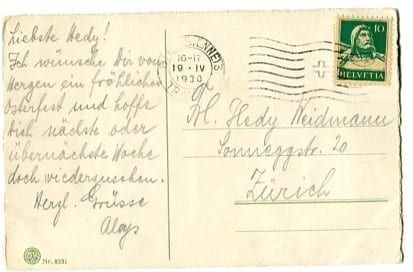 Liebste Hedy!
Ich wünsche Dir von
Herzen ein fröhliches
Osterfest und hoffe
Dich nächste oder
übernächste Woche
doch wiederzusehen.
Herzl. Grüsse
Aloys
Nr. 8331
16-17
19·IV
1930
10
HELVETIA
Frl. Hedy Weidmann
Sonneggstr. 20
Zürich